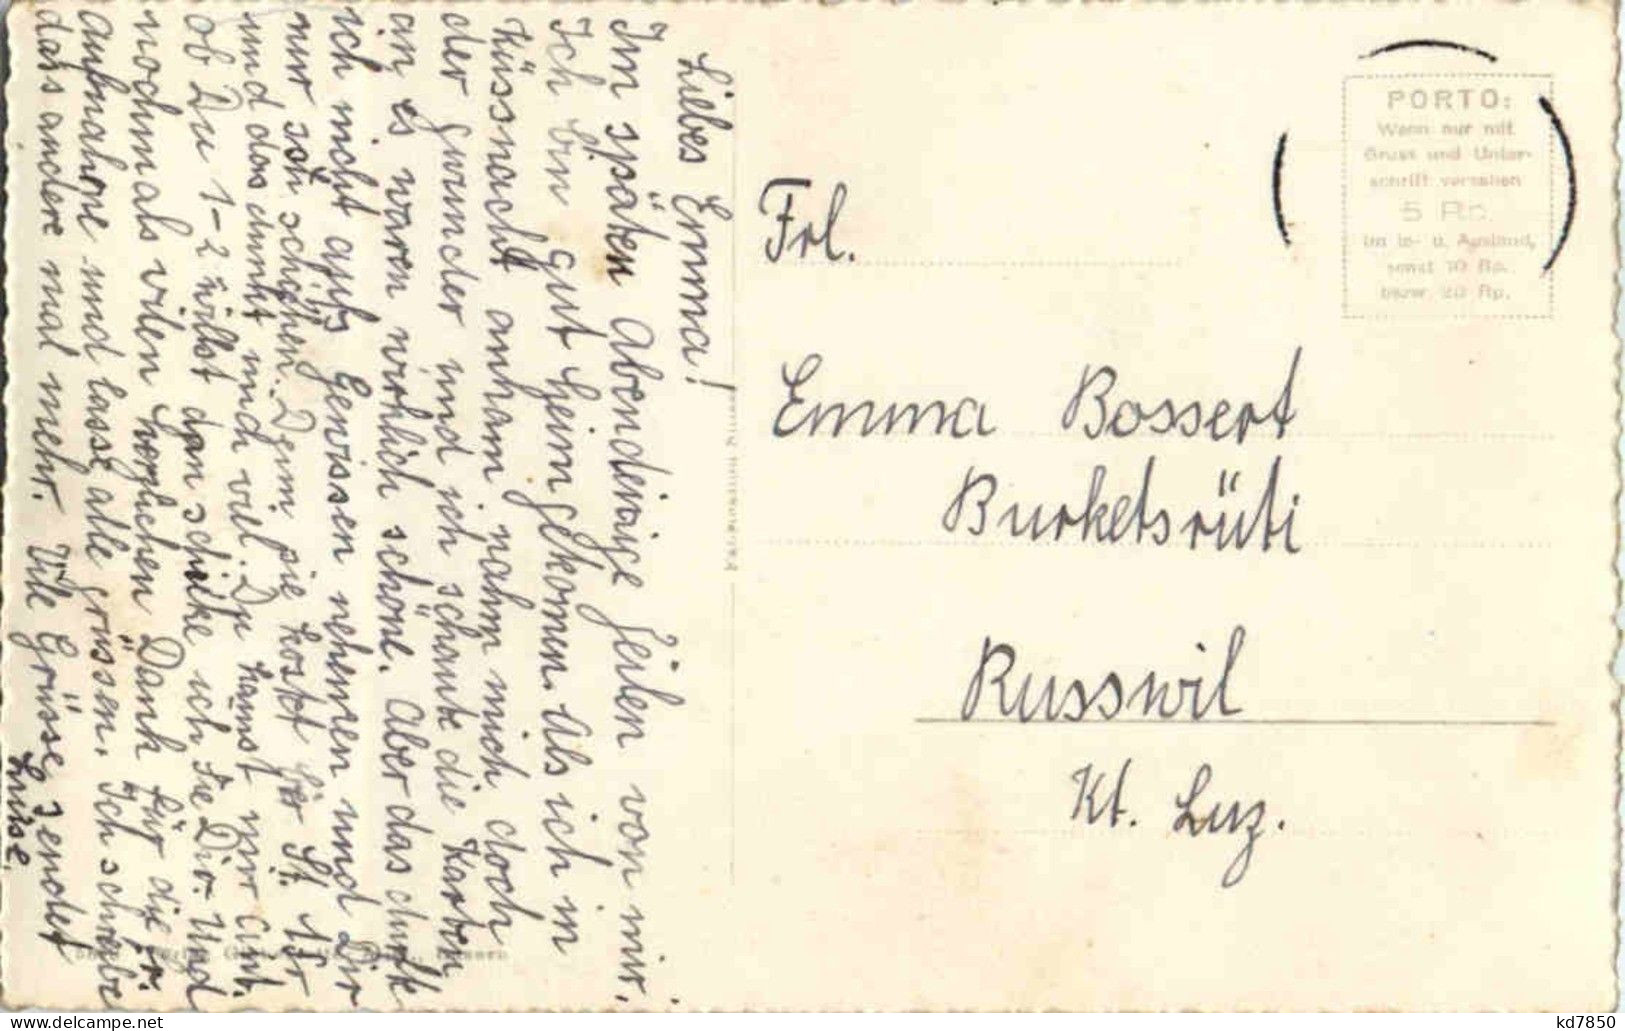 Liebes Emma!
Im späten Abend einige Zeilen von mir.
Ich bin gut heimgekomen. Als ich in
Küssnacht ankam nahm mich doch
der gwunder und ich schaute die Karten
an, es waren wirklich schöne. Aber das durfte
ich nicht aufs Gewissen nehmen und Dir
nur so schephen. Denn sie kostet per St. 1 Fr
und das dunkt mich viel. Du kanst mir Ant.
ob Du 1-2 willst dan schicke ich sie Dir. Und
nochmals vilen herzlichen Dank für die fr.
aufnahme und lasse alle grüssen. Ich schreibe
dass andere mal mehr. Vile Grüsse, sendet
Luise.
Frl.
Emma Bossert
Burketsrüti
Russwil
Kt. Luz.
PORTO:
Wenn nur mit
Gruss und Unter-
schrift versehen
5 Rp.
im In- u. Ausland,
sonst 10 Rp.
bezw. 20 Rp.
kd7850